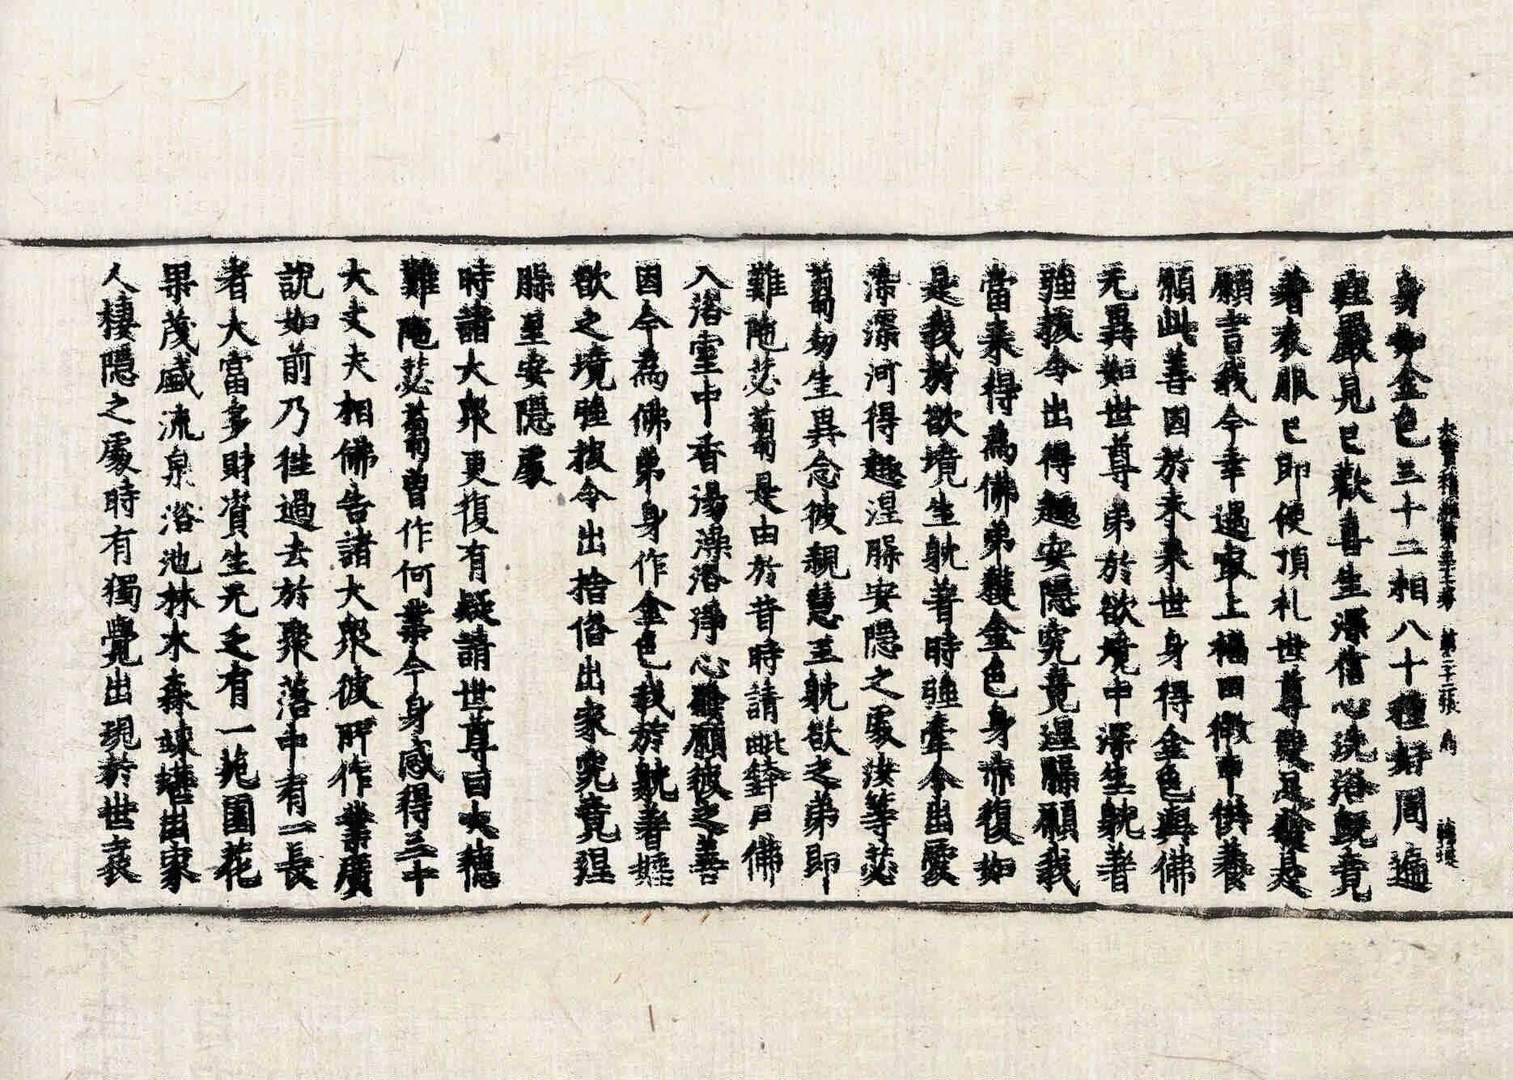 大寶積經第五十七卷 第二十三張 鳥
身如金色三十二相八十種好周遍
莊嚴見已歡喜生深信心洗浴旣竟
著衣服已即便頂礼世尊雙足發是
願言我今幸遇㝡上福田微申供養
願此善因於未來世身得金色與佛
无異如世尊弟於欲境中深生躭著
強拔令出得趣安隱究竟涅膝願我
當來得爲佛弟獲金色身亦復如
是我於欲境生躭著時強牽令出愛
染深河得趣涅膝安隱之處汝等苾
蒭勿生異念彼親慧王躭欲之弟即
難陁苾蒭是由於昔時請毗鉢尸佛
入浴室中香湯澡浴淨心發願彼之善
因今爲佛弟身作金色我於躭著婬
欲之境強拔令出捨俗出家究竟涅
膝至安隱處
時諸大衆更復有疑請世尊曰大德
難陁苾蒭曾作何業今身感得三十
大丈夫相佛告諸大衆彼所作業廣
說如前乃徃過去於聚落中有一長
者大富多財資生无乏有一菀園花
果茂盛流泉浴池林木森竦堪出家
人棲隱之處時有獨覺出現於世哀